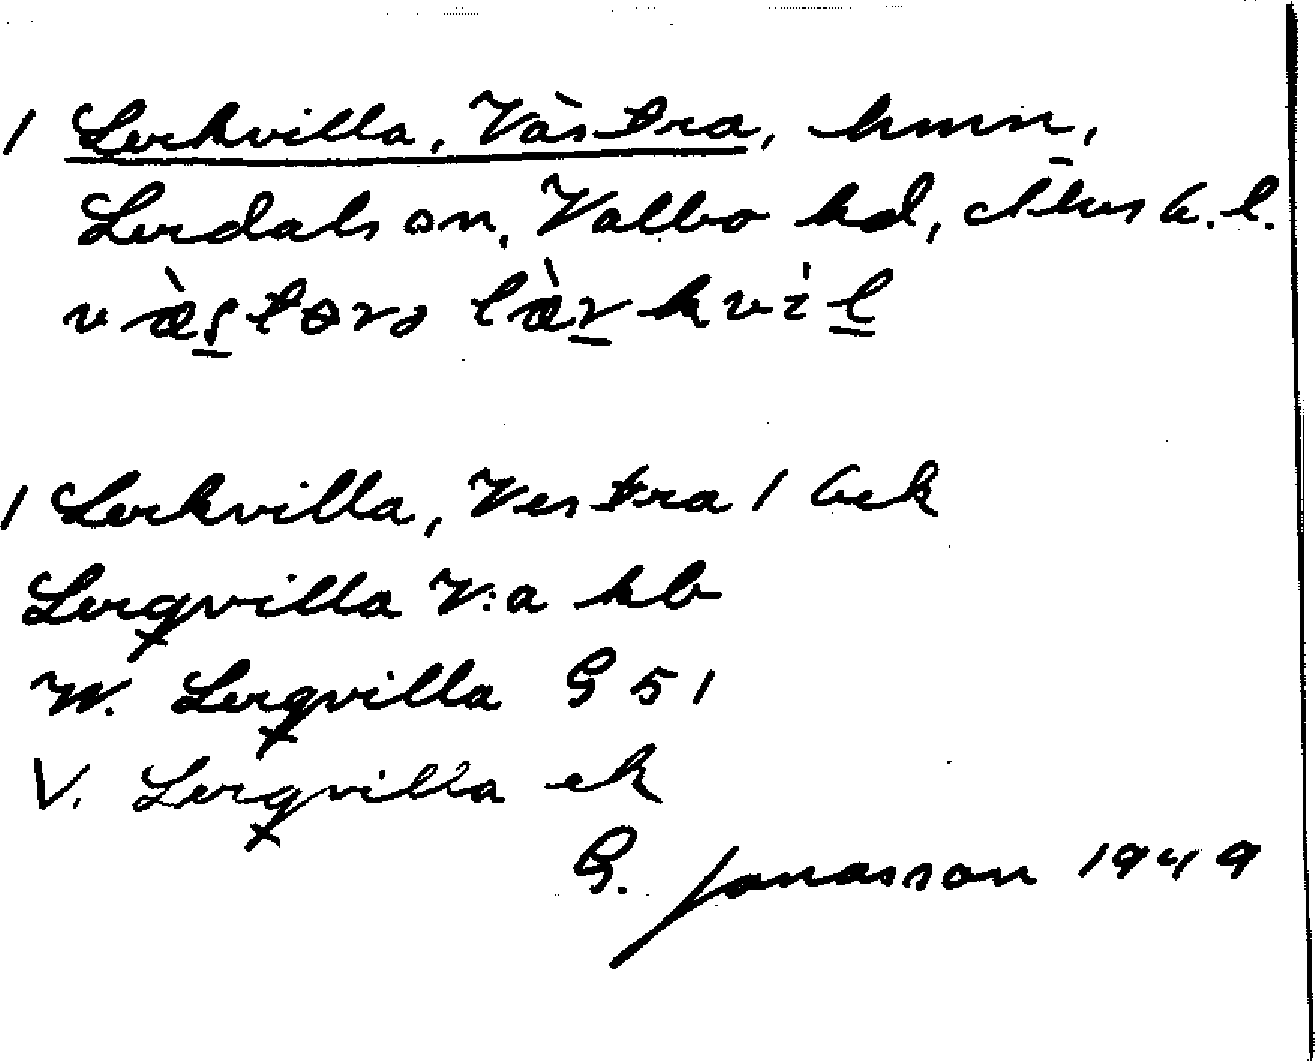 1 Lerkvilla, Västra, hmn,
Lerdals sn, Valbo hd, Älvsb. l.
væ̀stɵrs læ̀rkvìl
1 Lerkvilla, Vestra 1 Gek
Lerqvilla V:a kb
W. Lerqvilla G 51
V. Lerqvilla ek
G. Jonasson 1949